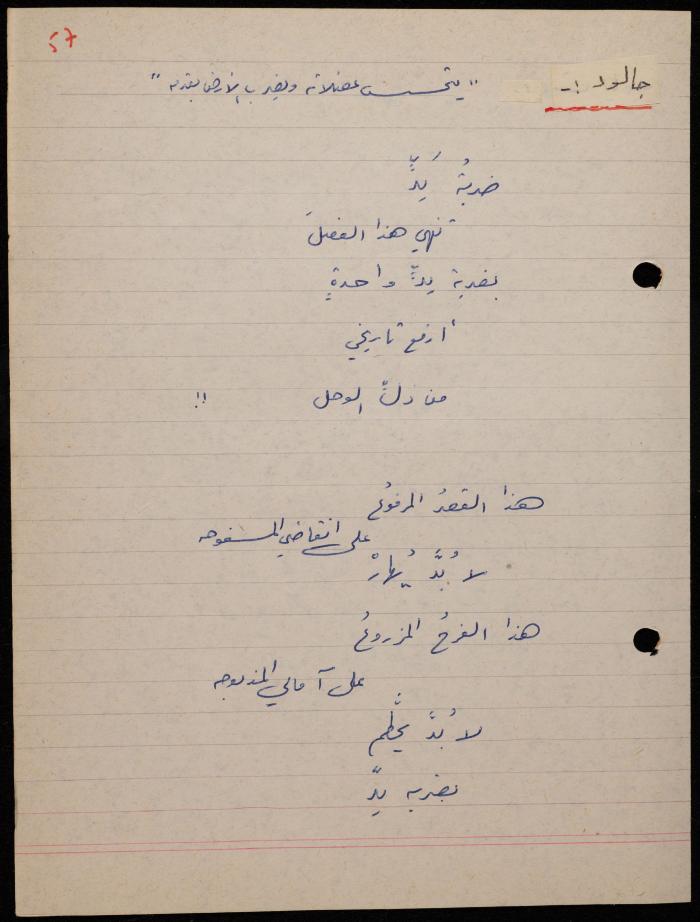 ٥٧
جالود :-
"يتحسس عضلاته ويضرب الأرض بقدمه"
ضربةُ يَدٍّ
تنهي هذا الفصلَ
بضربة يدٍّ واحدةٍ
أرفع تاريخي
من ذلِّ الوحل !!
هذا القصرُ المرفوعُ
على انقاضي المسفوحه
لا بُدَّ يُهارْ
هذا الفرحُ المزروعُ
على آمالي المذبوحه
لا بُدَّ يحطَّم
بضربه يدٍّ